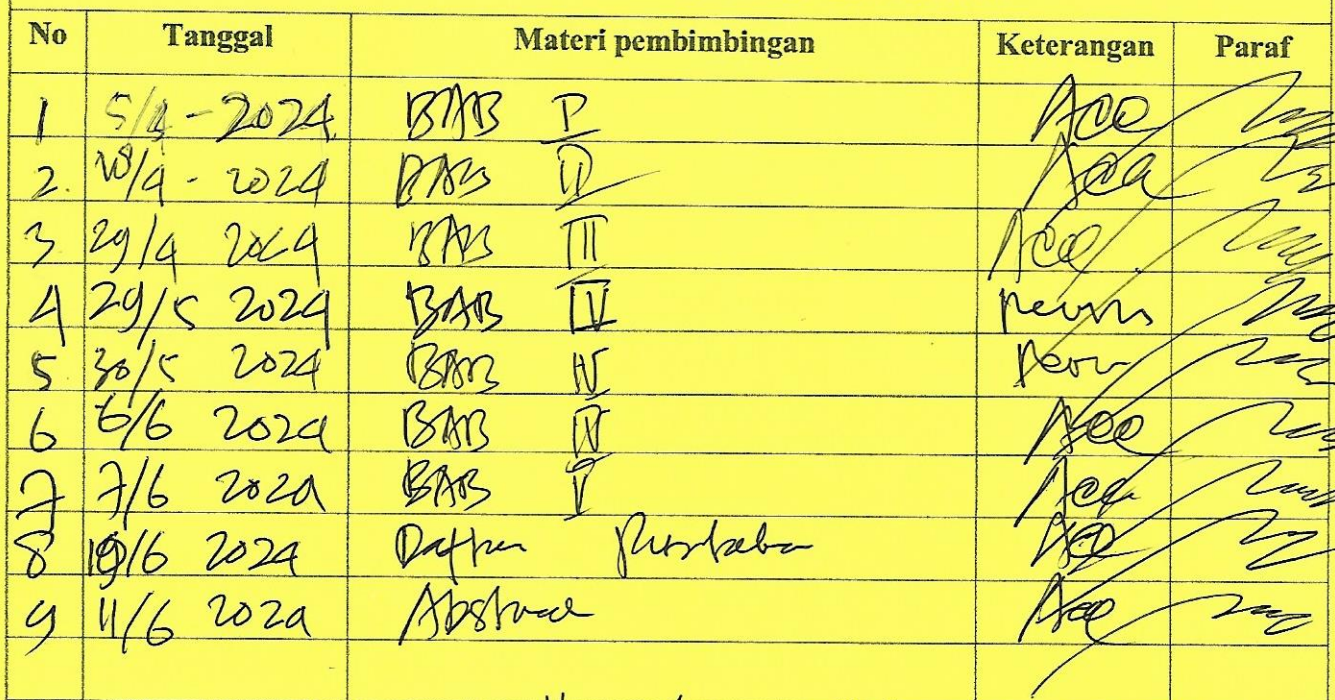 No Tanggal Materi pembimbingan Keterangan Paraf
1 5/4 - 2024 BAB I Acc
2. 18/4 - 2024 BAB II Acc
3 29/4 2024 BAB III Acc
4 29/5 2024 BAB IV revisi
5 30/5 2024 BAB IV
6 6/6 2024 BAB IV Acc
7 7/6 2024 BAB V Acc
8 10/6 2024 Daftar Pustaka Acc
9 11/6 2024 Abstrak Acc